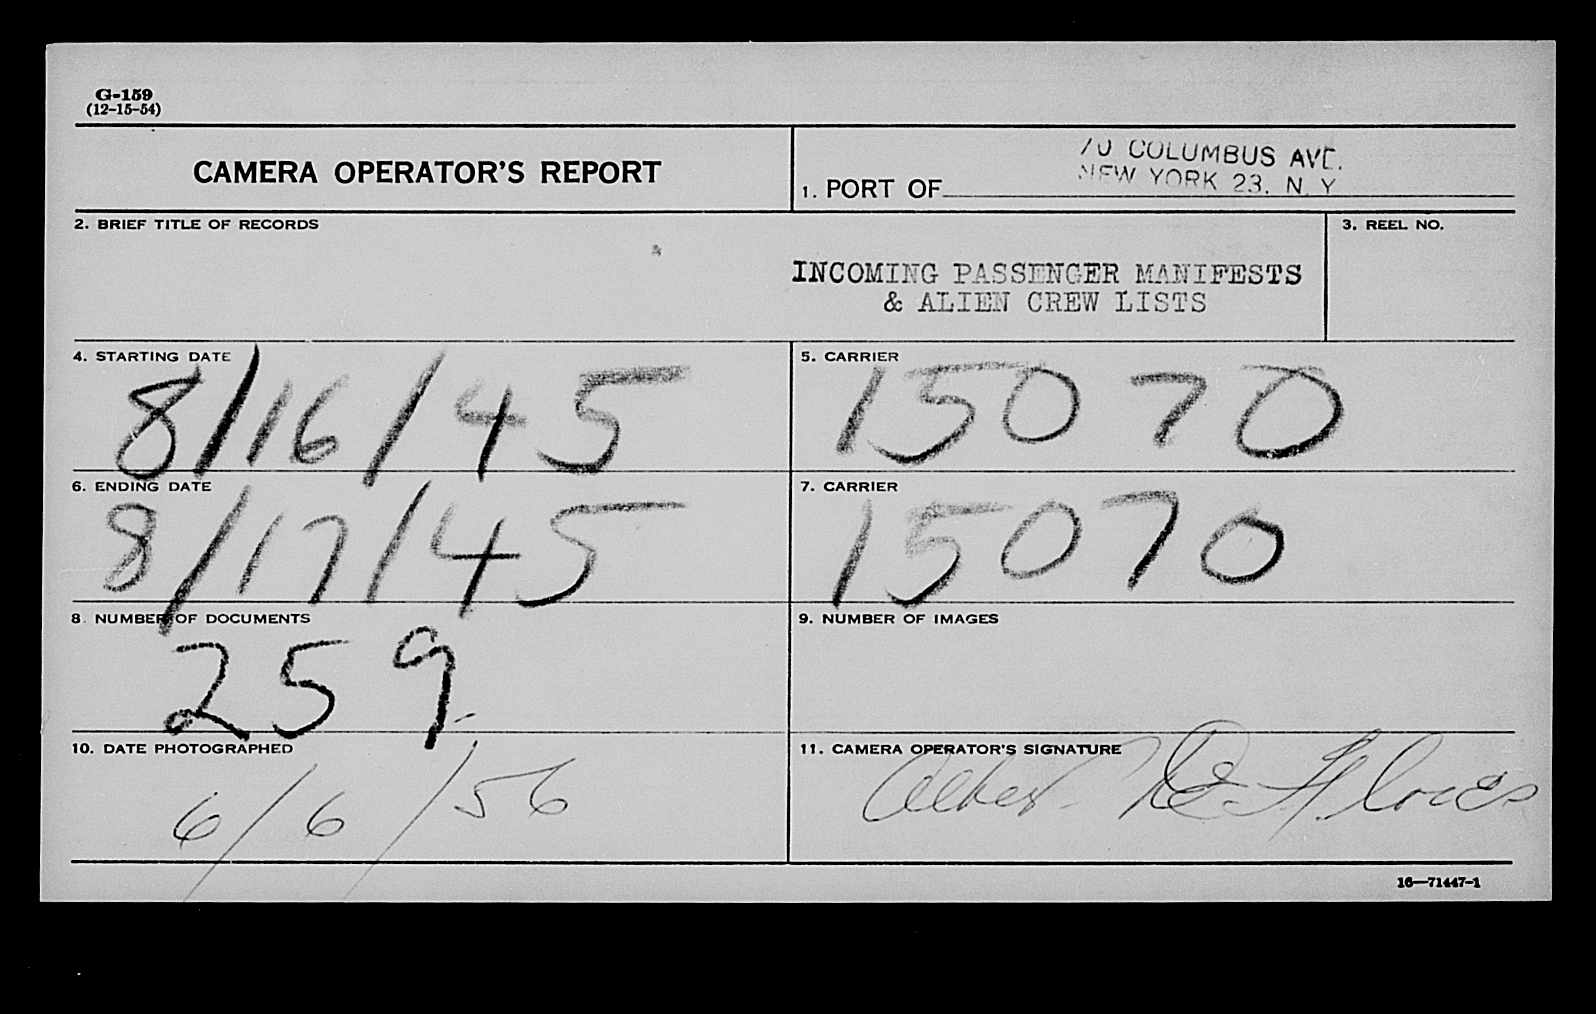 G-159
(12-15-54)
CAMERA OPERATOR'S REPORT
70 COLUMBUS AVE.
NEW YORK 23, N. Y
1. PORT OF
2. BRIEF TITLE OF RECORDS
3. REEL NO.
INCOMING PASSENGER MANIFESTS
& ALIEN CREW LISTS
4. STARTING DATE
8/16/45
5. CARRIER
15070
6. ENDING DATE
8/17/45
7. CARRIER
15070
8. NUMBER OF DOCUMENTS
259
9. NUMBER OF IMAGES
10. DATE PHOTOGRAPHED
6/6/56
11. CAMERA OPERATOR'S SIGNATURE
Albert De Flores
16—71447-1